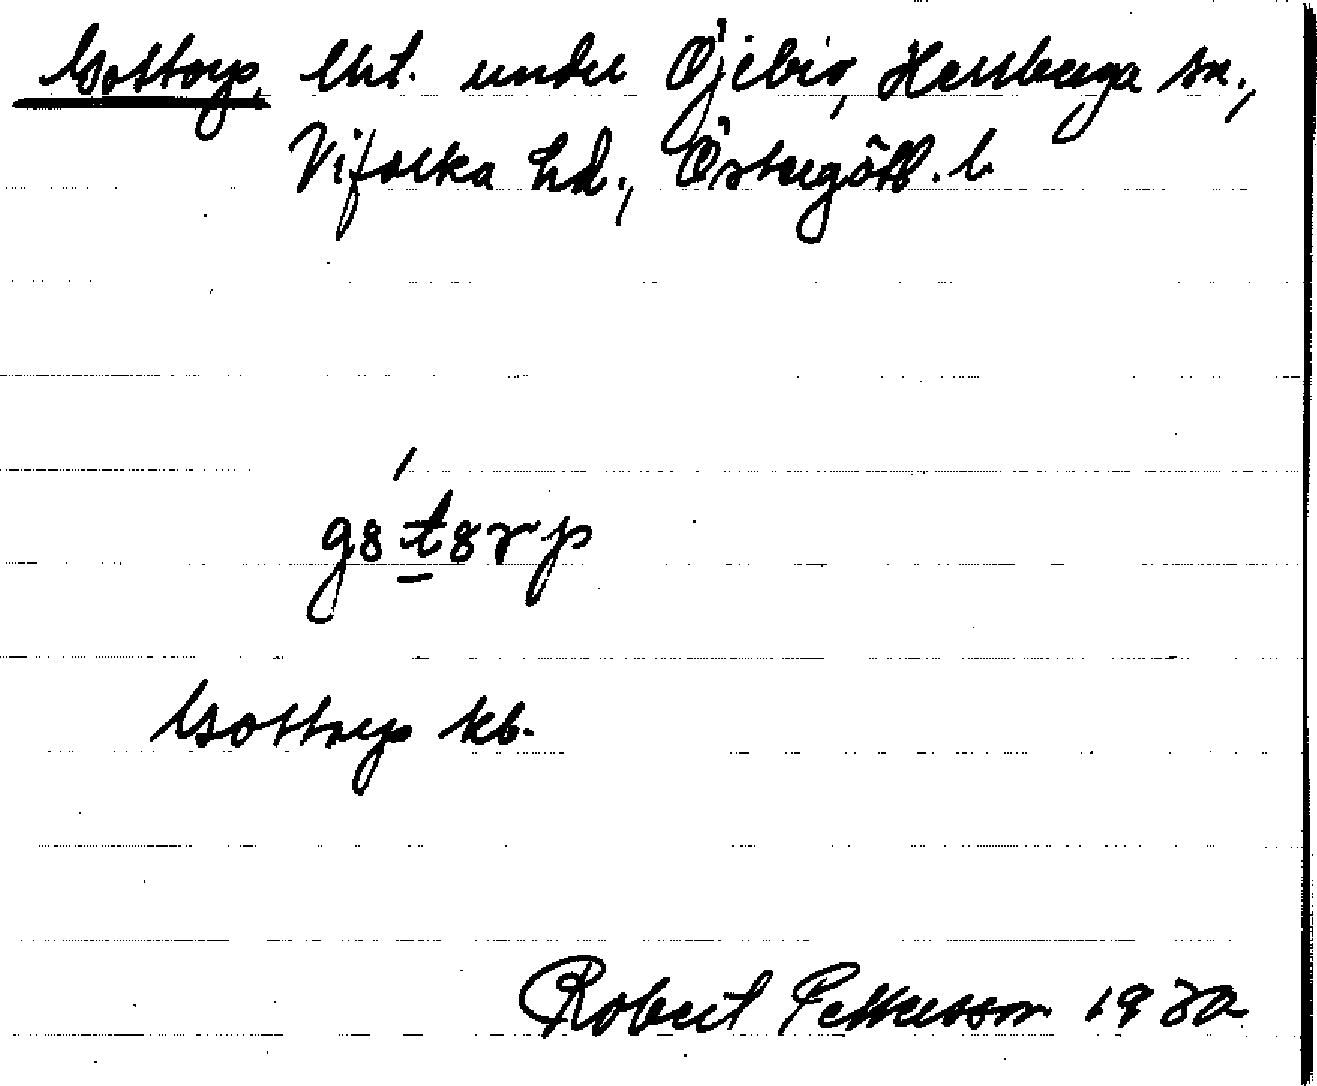 Gottorp, lht. under Öjebro, Herrberga sn.,
Vifolka hd., Östergötl. l.
g8t8rp
Gottorp kb.
Robert Pettersson 1930